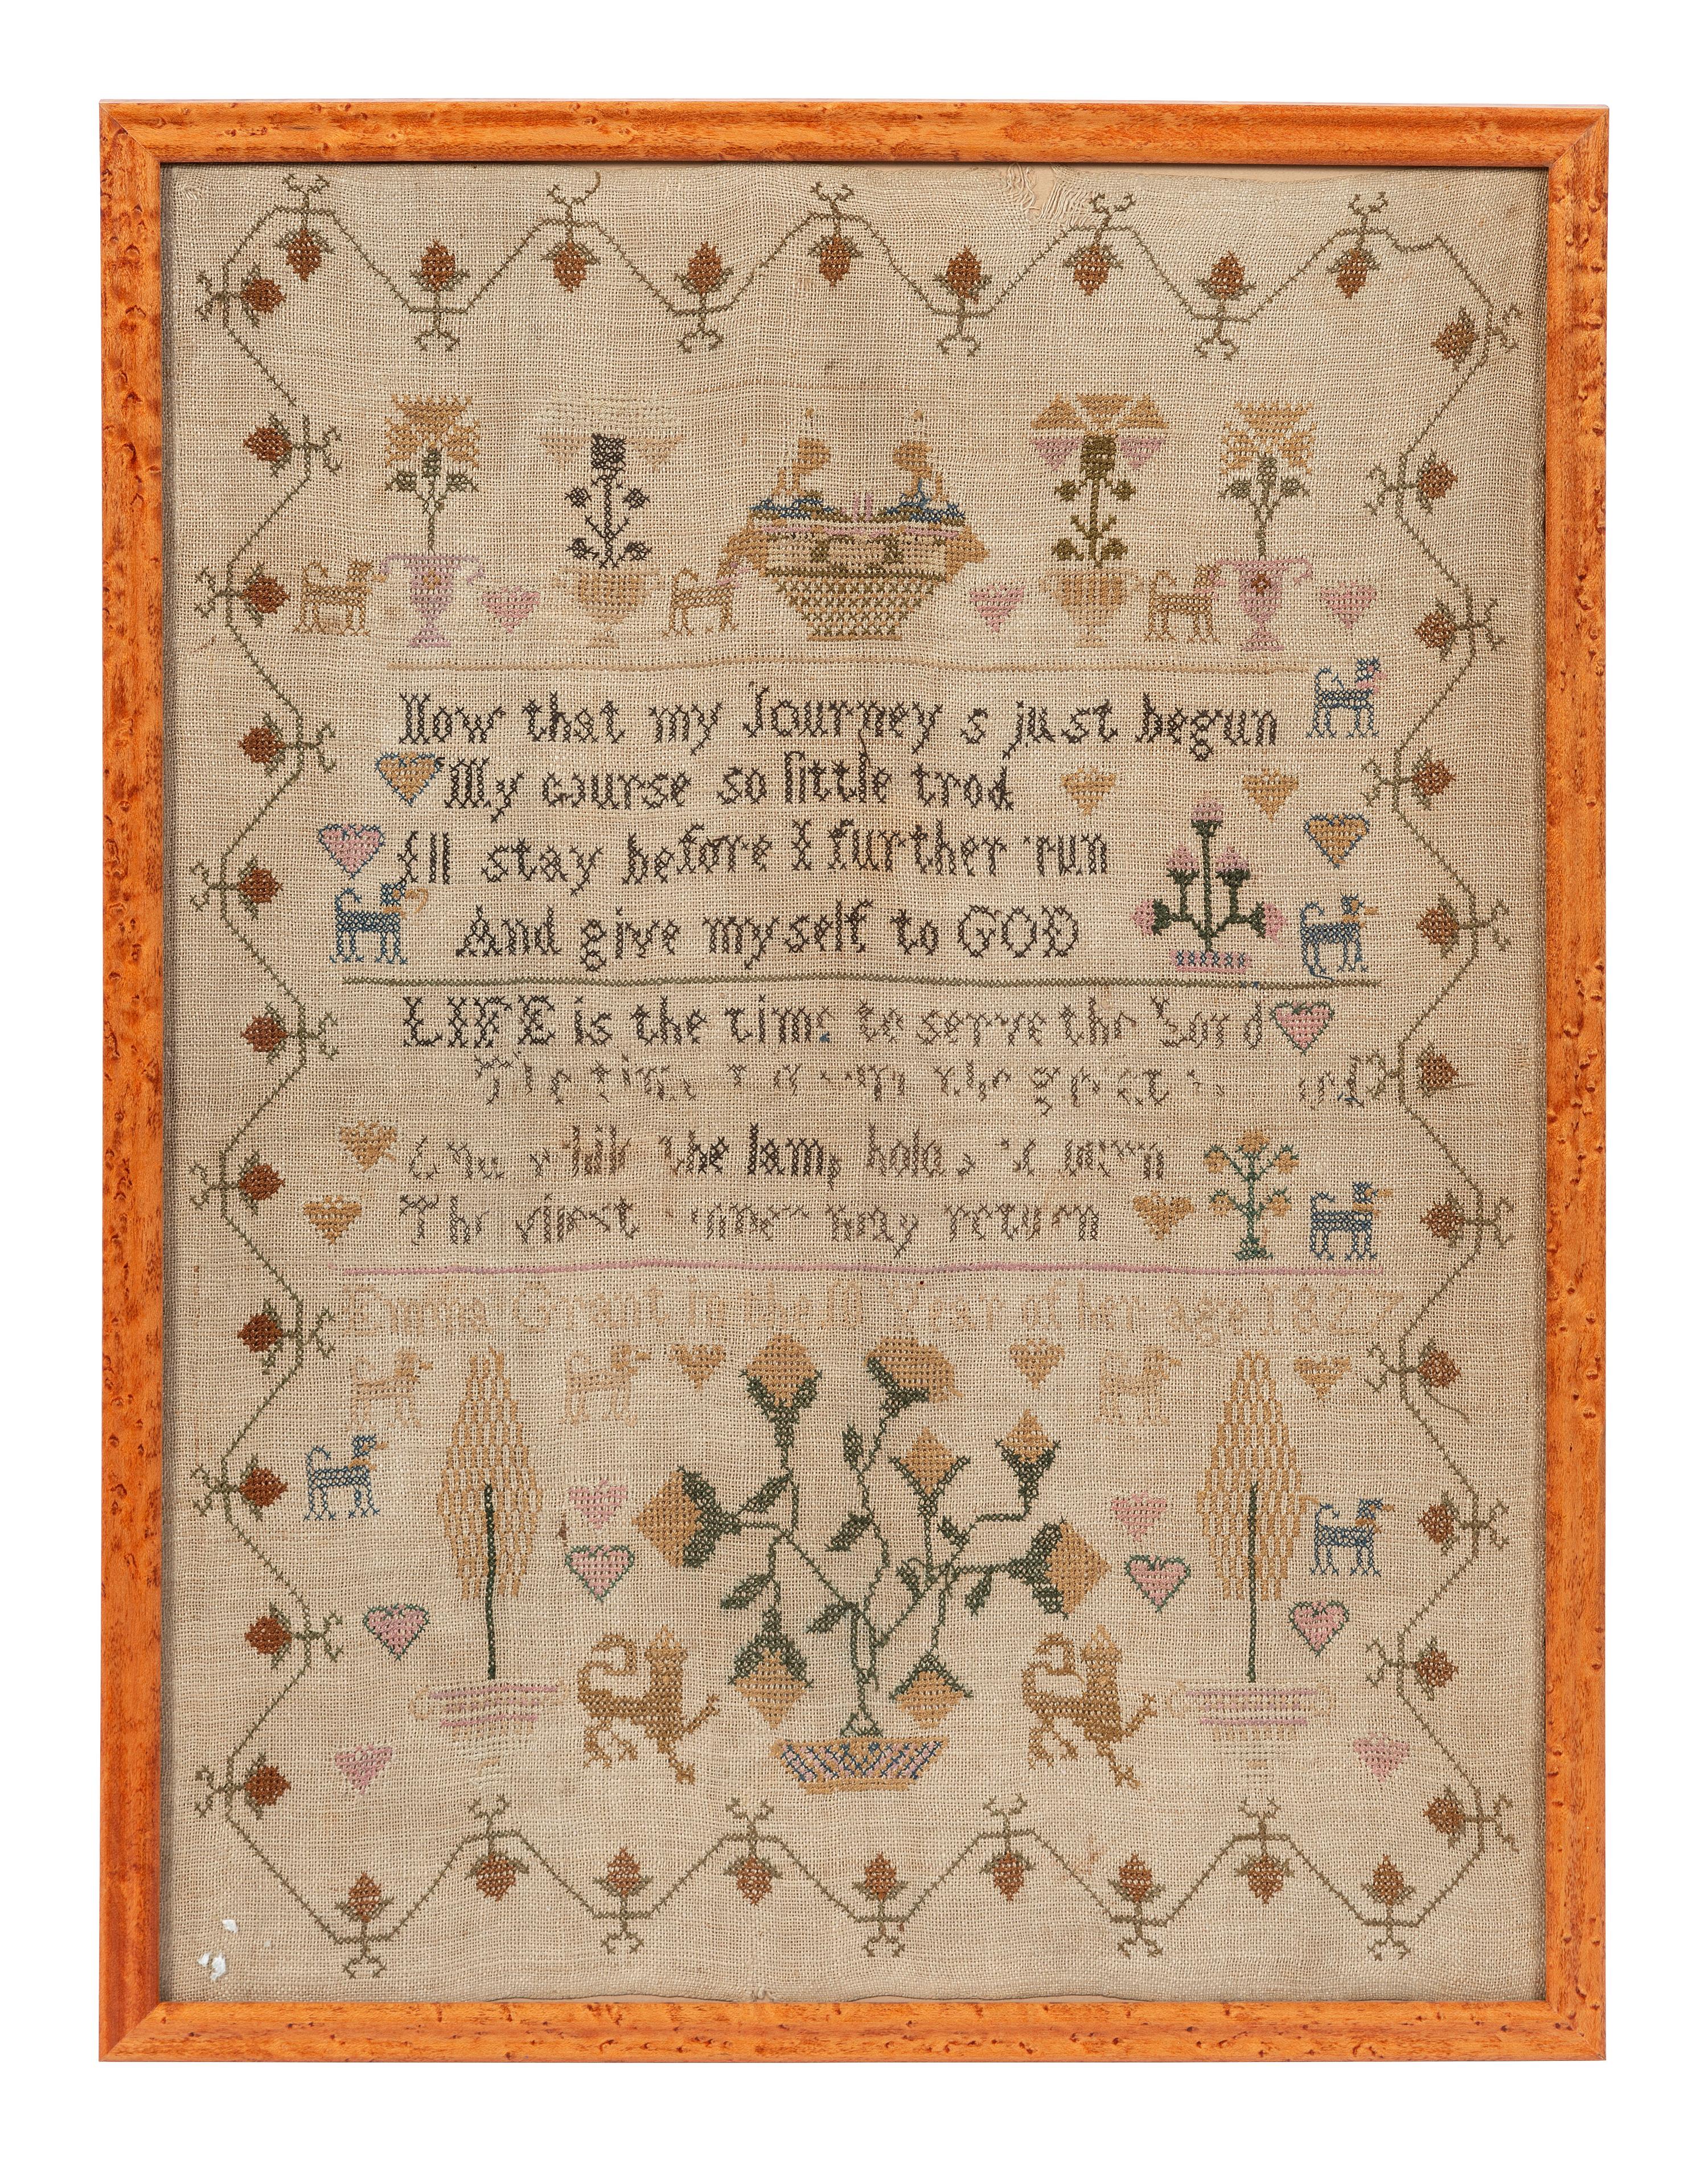 Now that my Journey s just begun
My course so little trod
Ill stay before I further run
And give myself to GOD
LIFE is the time to serve the Lord
The time the great
the lamp holds
The vilest may return
Emma Grant in the 10 Year of her age 1827